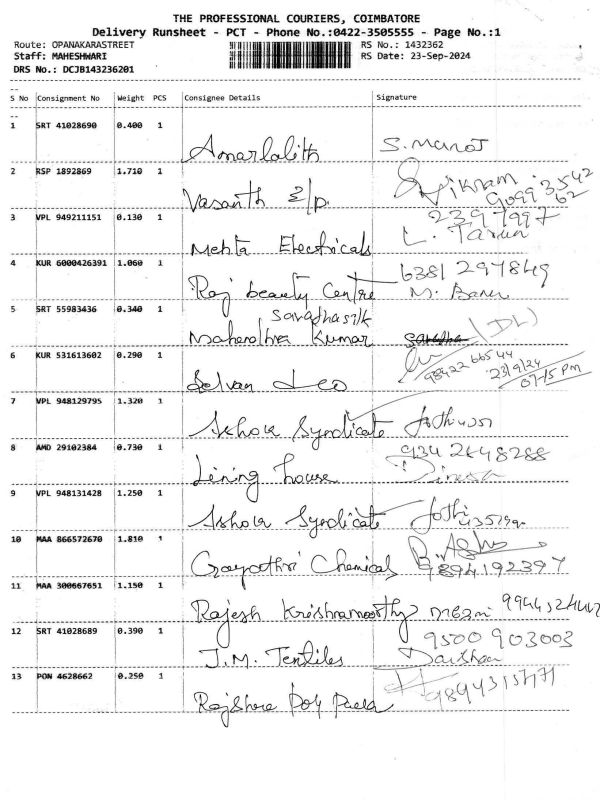 THE PROFESSIONAL COURIERS, COIMBATORE
Delivery Runsheet - PCT - Phone No.:0422-3505555 - Page No.:1
Route: OPANAKARASTREET RS No.: 1432362
Staff: MAHESHWARI RS Date: 23-Sep-2024
DRS No.: DCJB143236201
S No Consignment No Weight PCS Consignee Details Signature
1 SRT 41028690 0.400 1 Amarlalith S. Manoj
2 RSP 1892869 1.710 1 Vasanth E/p. Vikram
3 VPL 949211151 0.130 1 Mehta Electricals 2397997
L. Tarun
4 KUR 6000426391 1.060 1 Raj beauty Centre 6381297849
5 SRT 55983436 0.340 1 Kumar (DL)
6 KUR 531613602 0.290 1 Selvan Leo 98422 66544
23/9/24
07-15 Pm
7 VPL 948129795 1.320 1 Ashok Syndicate Jothi
8 AMD 29102384 0.730 1 Lining house 934 2648288
Dinesh
9 VPL 948131428 1.250 1 Ashok Syndicate Jothi
10 MAA 866572670 1.810 1 Gayathri Chemicals 9894192397
11 MAA 300667651 1.150 1 Rajesh Krishnamoorthy
12 SRT 41028689 0.390 1 J.M. Textiles 9500 903003
Darshan
13 PON 4628662 0.250 1 Rajshree Poly